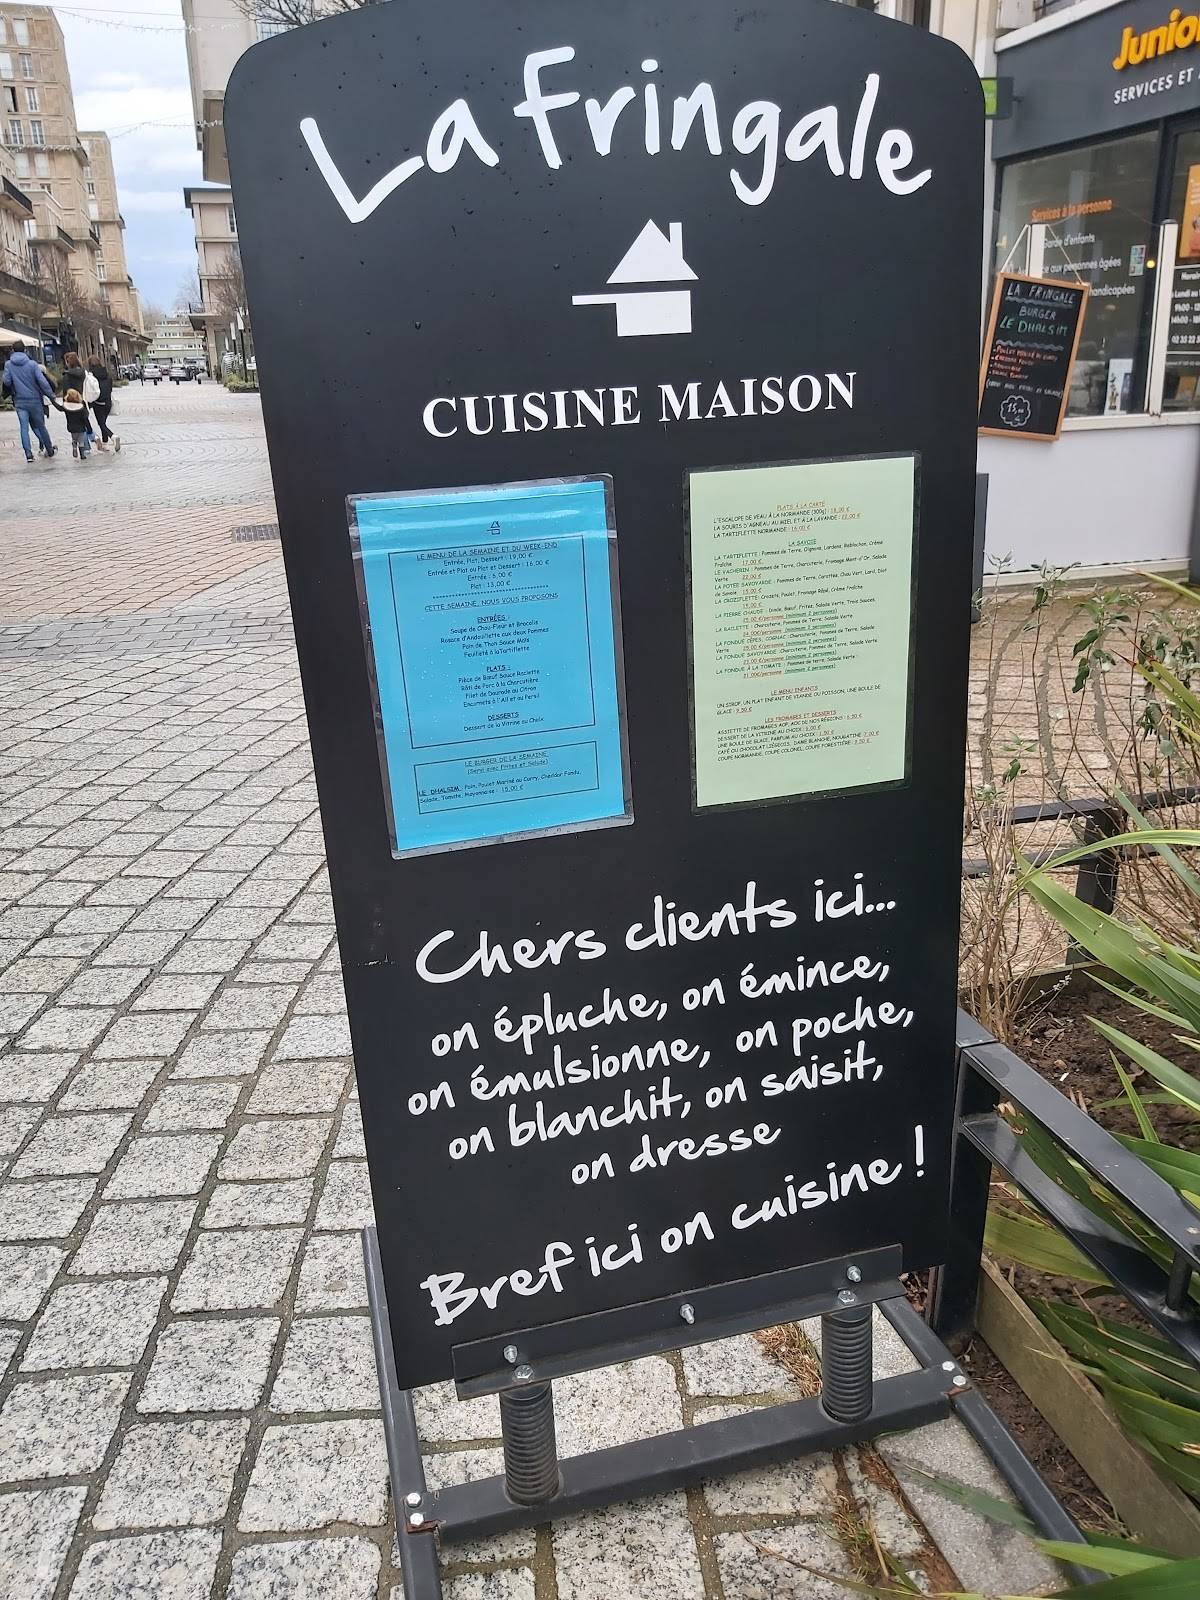 La Fringale
CUISINE MAISON
LE MENU DE LA SEMAINE ET DU WEEK-END
Entrée, Plat, Dessert : 19,00 €
Entrée et Plat ou Plat et Dessert : 16,00 €
Entrée : 6,00 €
Plat : 13,00 €
CETTE SEMAINE, NOUS VOUS PROPOSONS
ENTRÉES :
Soupe de Chou-Fleur et Brocolis
Rosace d'Andouillette aux deux Pommes
Pain de Thon Sauce Maïs
Feuilleté à la Tartiflette
PLATS :
Pièce de Bœuf Sauce Raclette
Rôti de Porc à la Charcutière
Filet de Daurade au Citron
Encornets à l'Ail et au Persil
DESSERTS
Dessert de la Vitrine au Choix
LE BURGER DE LA SEMAINE
(Servi avec Frites et Salade)
LE DHALSIM : Pain, Poulet Mariné au Curry, Cheddar Fondu,
Salade, Tomate, Mayonnaise : 15,00 €
PLATS À LA CARTE
L'ESCALOPE DE VEAU À LA NORMANDE (300g) : 18,00 €
LA SOURIS D'AGNEAU AU MIEL ET À LA LAVANDE : 22,00 €
LA TARTIFLETTE NORMANDE : 16,00 €
LA SAVOIE
LA TARTIFLETTE : Pommes de Terre, Oignons, Lardons, Reblochon, Crème
Fraîche 17,00 €
LE VACHERIN : Pommes de Terre, Charcuterie, Fromage Mont-d'Or, Salade
Verte 22,00 €
LA POTÉE SAVOYARDE : Pommes de Terre, Carottes, Chou Vert, Lard, Diot
de Savoie 15,00 €
LA CROZIFLETTE : Crozets, Poulet, Fromage Râpé, Crème Fraîche
15,00 €
LA PIERRE CHAUDE : Dinde, Bœuf, Frites, Salade Verte, Trois Sauces,
25,00 €/personne (minimum 2 personnes)
LA RACLETTE : Charcuterie, Pommes de Terre, Salade Verte,
24,00€/personne (minimum 2 personnes)
LA FONDUE CÈPES, COGNAC : Charcuterie, Pommes de Terre, Salade
Verte 25,00 €/personne (minimum 2 personnes)
LA FONDUE SAVOYARDE : Charcuterie, Pommes de Terre, Salade Verte
23,00 €/personne (minimum 2 personnes)
LA FONDUE À LA TOMATE : Pommes de terre, Salade Verte
21,00€/personne (minimum 2 personnes)
LE MENU ENFANTS
UN SIROP, UN PLAT ENFANT DE VIANDE OU POISSON, UNE BOULE DE
GLACE : 9,50 €
LES FROMAGES ET DESSERTS
ASSIETTE DE FROMAGES AOP, AOC DE NOS RÉGIONS : 6,50 €
DESSERT DE LA VITRINE AU CHOIX :
UNE BOULE DE GLACE, PARFUM AU CHOIX :
CAFÉ OU CHOCOLAT LIÉGEOIS, DAME BLANCHE, NOUGATINE 7,00 €
COUPE NORMANDE, COUPE COLONEL, COUPE FORESTIÈRE :
Chers clients ici...
on épluche, on émince,
on émulsionne, on poche,
on blanchit, on saisit,
on dresse
Bref ici on cuisine !
Junio
SERVICES ET
Services à la personne
Garde d'enfants
aux personnes âgées
handicapées
LA FRINGALE
BURGER
LE DHALSIM